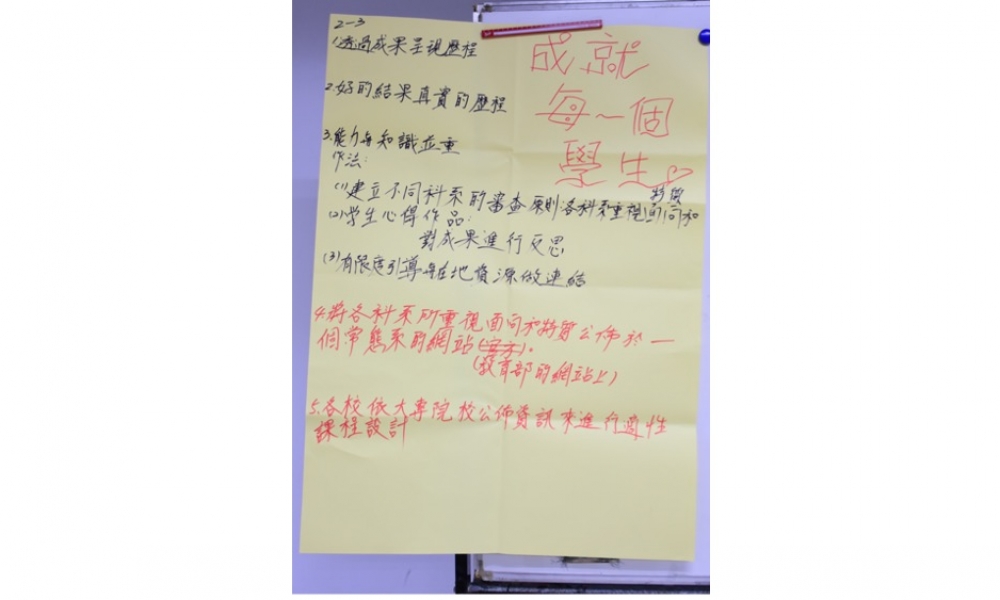 2-3
1.透過成果呈現歷程
成就
每一個
學生♡
2.好的結果真實的歷程
3.能力與知識並重
作法:
(1)建立不同科系的審查原則各科系重視面向和特質
(2)學生心得作品:
對成果進行反思
(3)有限度引導與在地資源做連結
4.將各科系所重視面向和特質公佈於一
個常態系的網站(官方)。
(教育部的網站上)
5.各校依大專院校公佈資訊來進行適性
課程設計